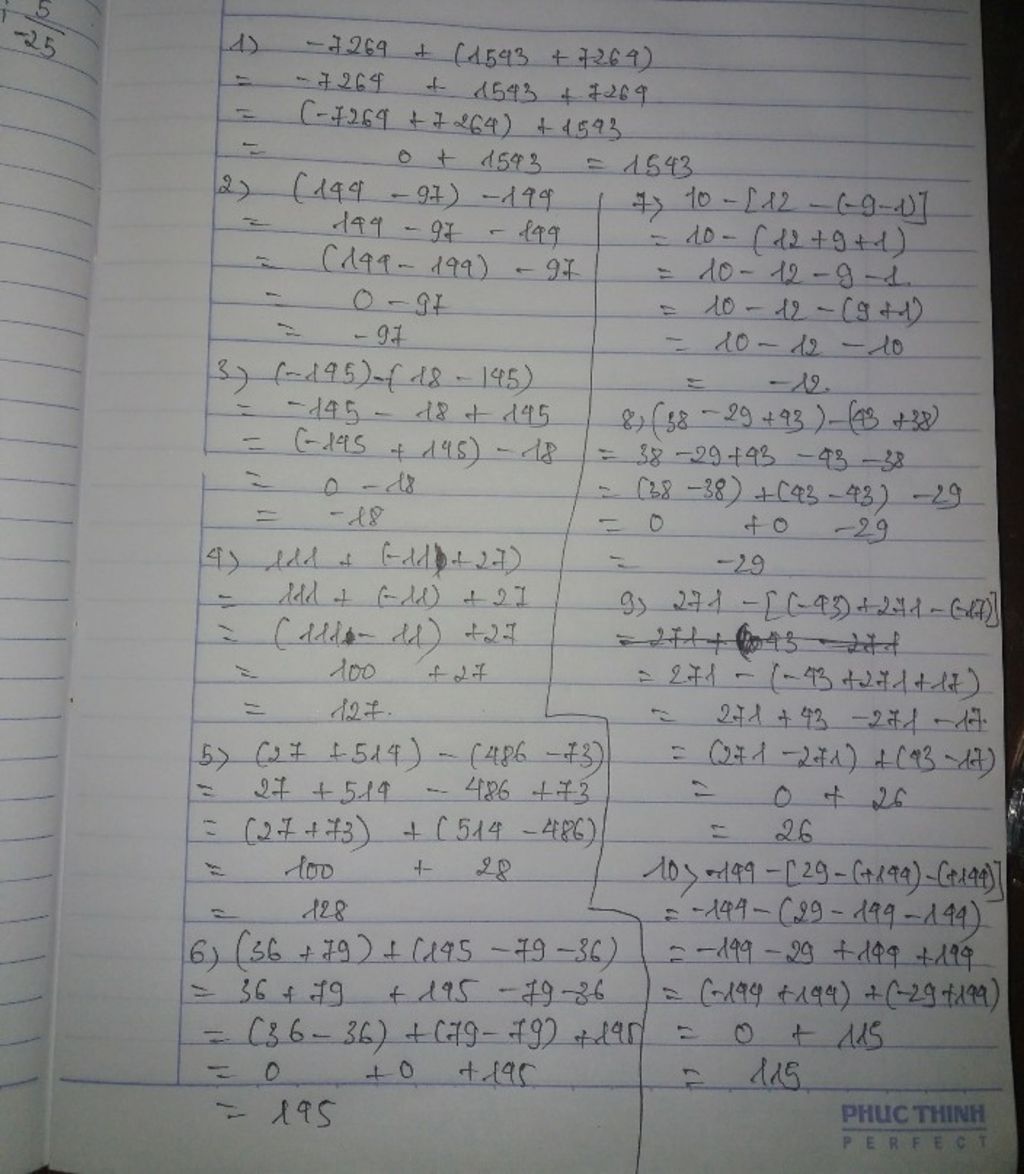 5
-25
1) -7264 + (1543 + 7264)
= -7264 + 1543 + 7264
= (-7264 + 7264) + 1543
= 0 + 1543 = 1543
2) (144 - 97) - 144
= 144 - 97 - 144
= (144 - 144) - 97
= 0 - 97
= -97
3) (-145) - (18 - 145)
= -145 - 18 + 145
= (-145 + 145) - 18
= 0 - 18
= -18
4) 111 + (-11 + 27)
= 111 + (-11) + 27
= (111 - 11) + 27
= 100 + 27
= 127.
5) (27 + 514) - (486 - 73)
= 27 + 514 - 486 + 73
= (27 + 73) + (514 - 486)
= 100 + 28
= 128
6) (36 + 79) + (145 - 79 - 36)
= 36 + 79 + 145 - 79 - 36
= (36 - 36) + (79 - 79) + 145
= 0 + 0 + 145
= 145
7) 10 - [12 - (-9 - 1)]
= 10 - (12 + 9 + 1)
= 10 - 12 - 9 - 1.
= 10 - 12 - (9 + 1)
= 10 - 12 - 10
= -12.
8) (38 - 29 + 43) - (43 + 38)
= 38 - 29 + 43 - 43 - 38
= (38 - 38) + (43 - 43) - 29
= 0 + 0 - 29
= -29
9) 271 - [(-43) + 271 - (-17)]
= 271 + 43 - 271
= 271 - (-43 + 271 + 17)
= 271 + 43 - 271 - 17.
= (271 - 271) + (43 - 17)
= 0 + 26
= 26
10) -144 - [29 - (+144) - (+144)]
= -144 - (29 - 144 - 144)
= -144 - 29 + 144 + 144
= (-144 + 144) + (-29 + 144)
= 0 + 115
= 115
PHUC THINH
PERFECT